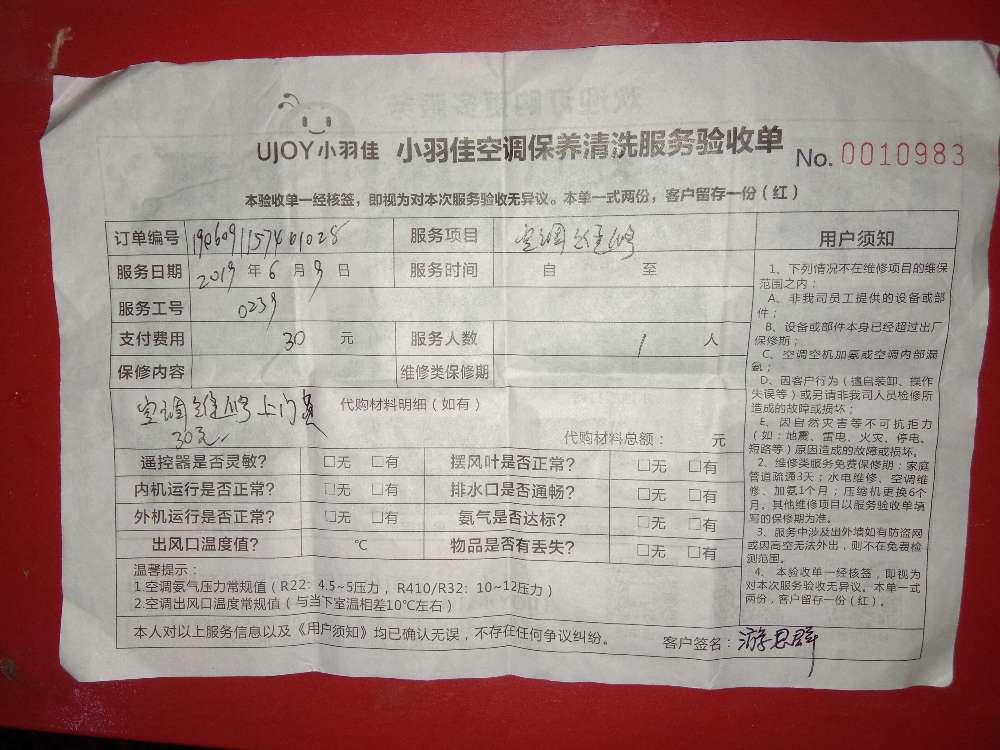 UJOY小羽佳 小羽佳空调保养清洗服务验收单 No. 0010983
本验收单一经核签，即视为对本次服务验收无异议。本单一式两份，客户留存一份（红）
订单编号 1906091157401028 服务项目 空调维修
服务日期 2019 年 6 月 9 日 服务时间 自 至
服务工号 0239
支付费用 30 元 服务人数 1 人
保修内容 维修类保修期
空调维修上门费 代购材料明细（如有）
30元. 代购材料总额： 元
遥控器是否灵敏? □无 □有 摆风叶是否正常? □无 □有
内机运行是否正常? □无 □有 排水口是否通畅? □无 □有
外机运行是否正常? □无 □有 氨气是否达标? □无 □有
出风口温度值? ℃ 物品是否有丢失? □无 □有
温馨提示：
1.空调氨气压力常规值（R22：4.5~5压力，R410/R32：10~12压力）
2.空调出风口温度常规值（与当下室温相差10℃左右）
本人对以上服务信息以及《用户须知》均已确认无误，不存在任何争议纠纷。 客户签名：游思群
用户须知
1、下列情况不在维修项目的维保
范围之内：
A、非我司员工提供的设备或部
件；
B、设备或部件本身已经超过出厂
保修期；
C、空调空机加氨或空调内部漏
氨；
D、因客户行为（遭自装卸、操作
失误等）或另请非我司人员检修所
造成的故障或损坏；
E、因自然灾害等不可抗拒力
（如：地震、雷电、火灾、停电、
短路等）原因造成的故障或损坏。
2、维修类服务免费保修期：家庭
管道疏通3天；水电维修、空调维
修、加氨1个月；压缩机更换6个
月，其他维修项目以服务验收单填
写的保修期为准。
3、服务中涉及出外墙如有防盗网
或因高空无法外出，则不在免费检
测范围。
4、本验收单一经核签，即视为
对本次服务验收无异议。本单一式
两份，客户留存一份（红）。